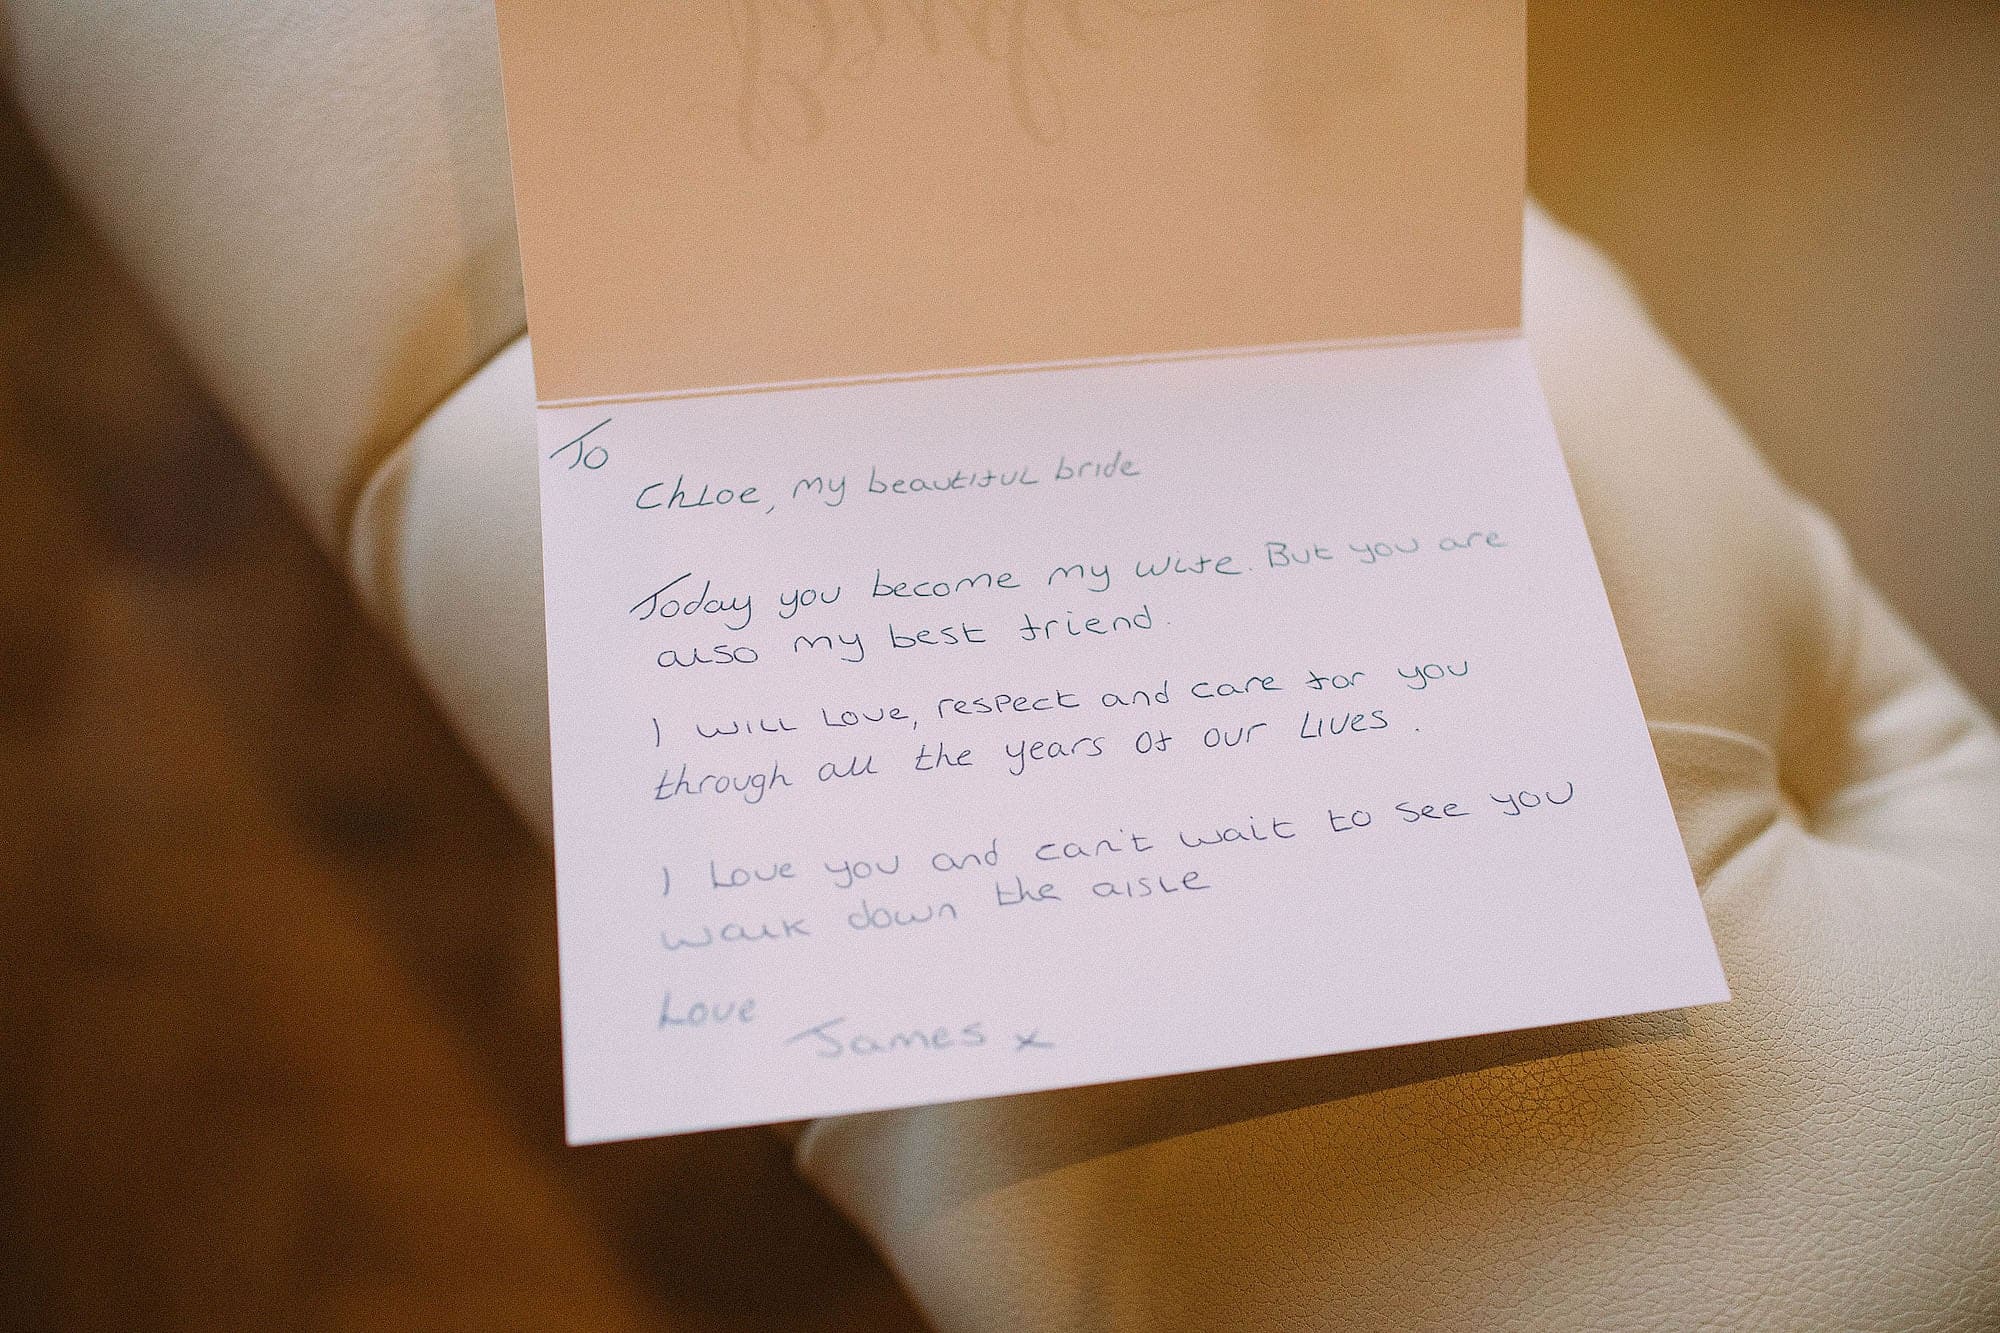 To
Chloe, my beautiful bride
Today you become my wife. But you are
also my best friend.
I will love, respect and care for you
through all the years of our lives.
I love you and can't wait to see you
walk down the aisle
Love
James x